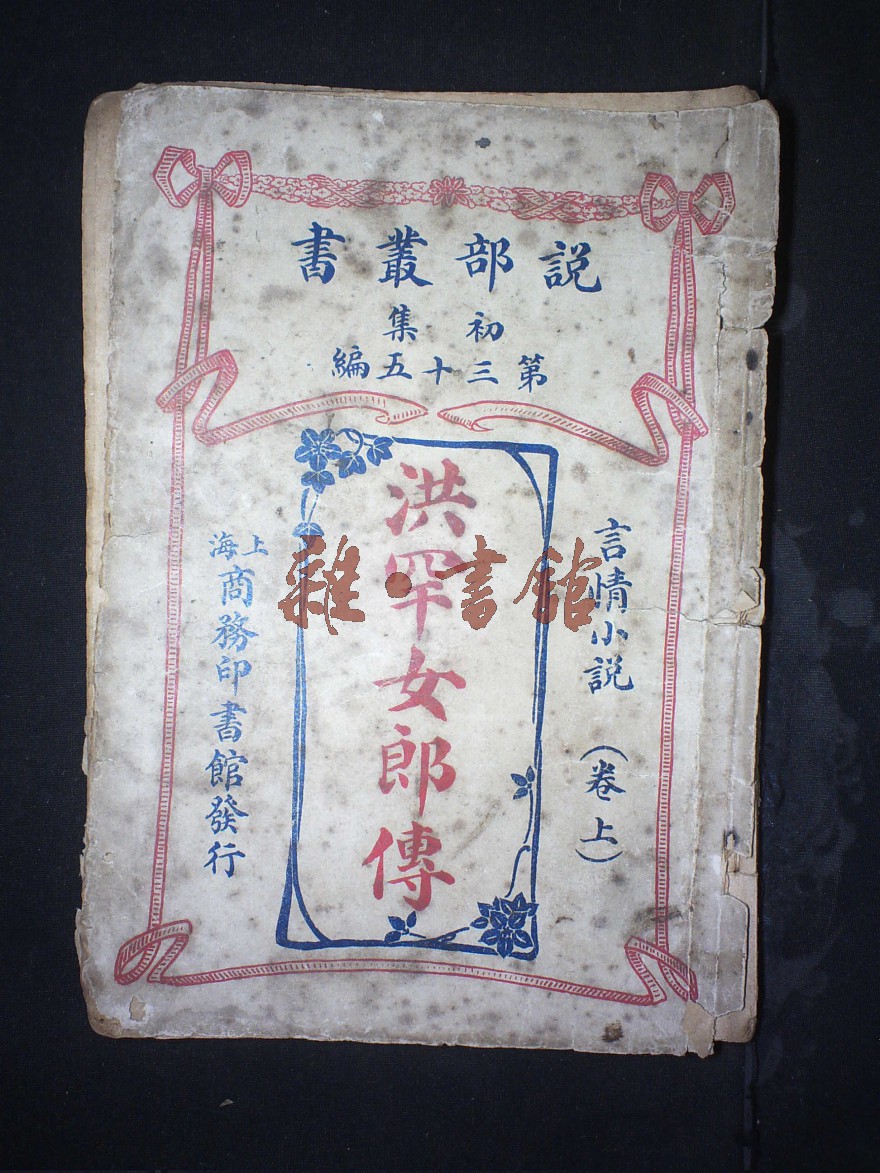 説部叢書
初集
第三十五編
言情小説（卷上）
洪罕女郎傳
上海商務印書館發行
雜·書館